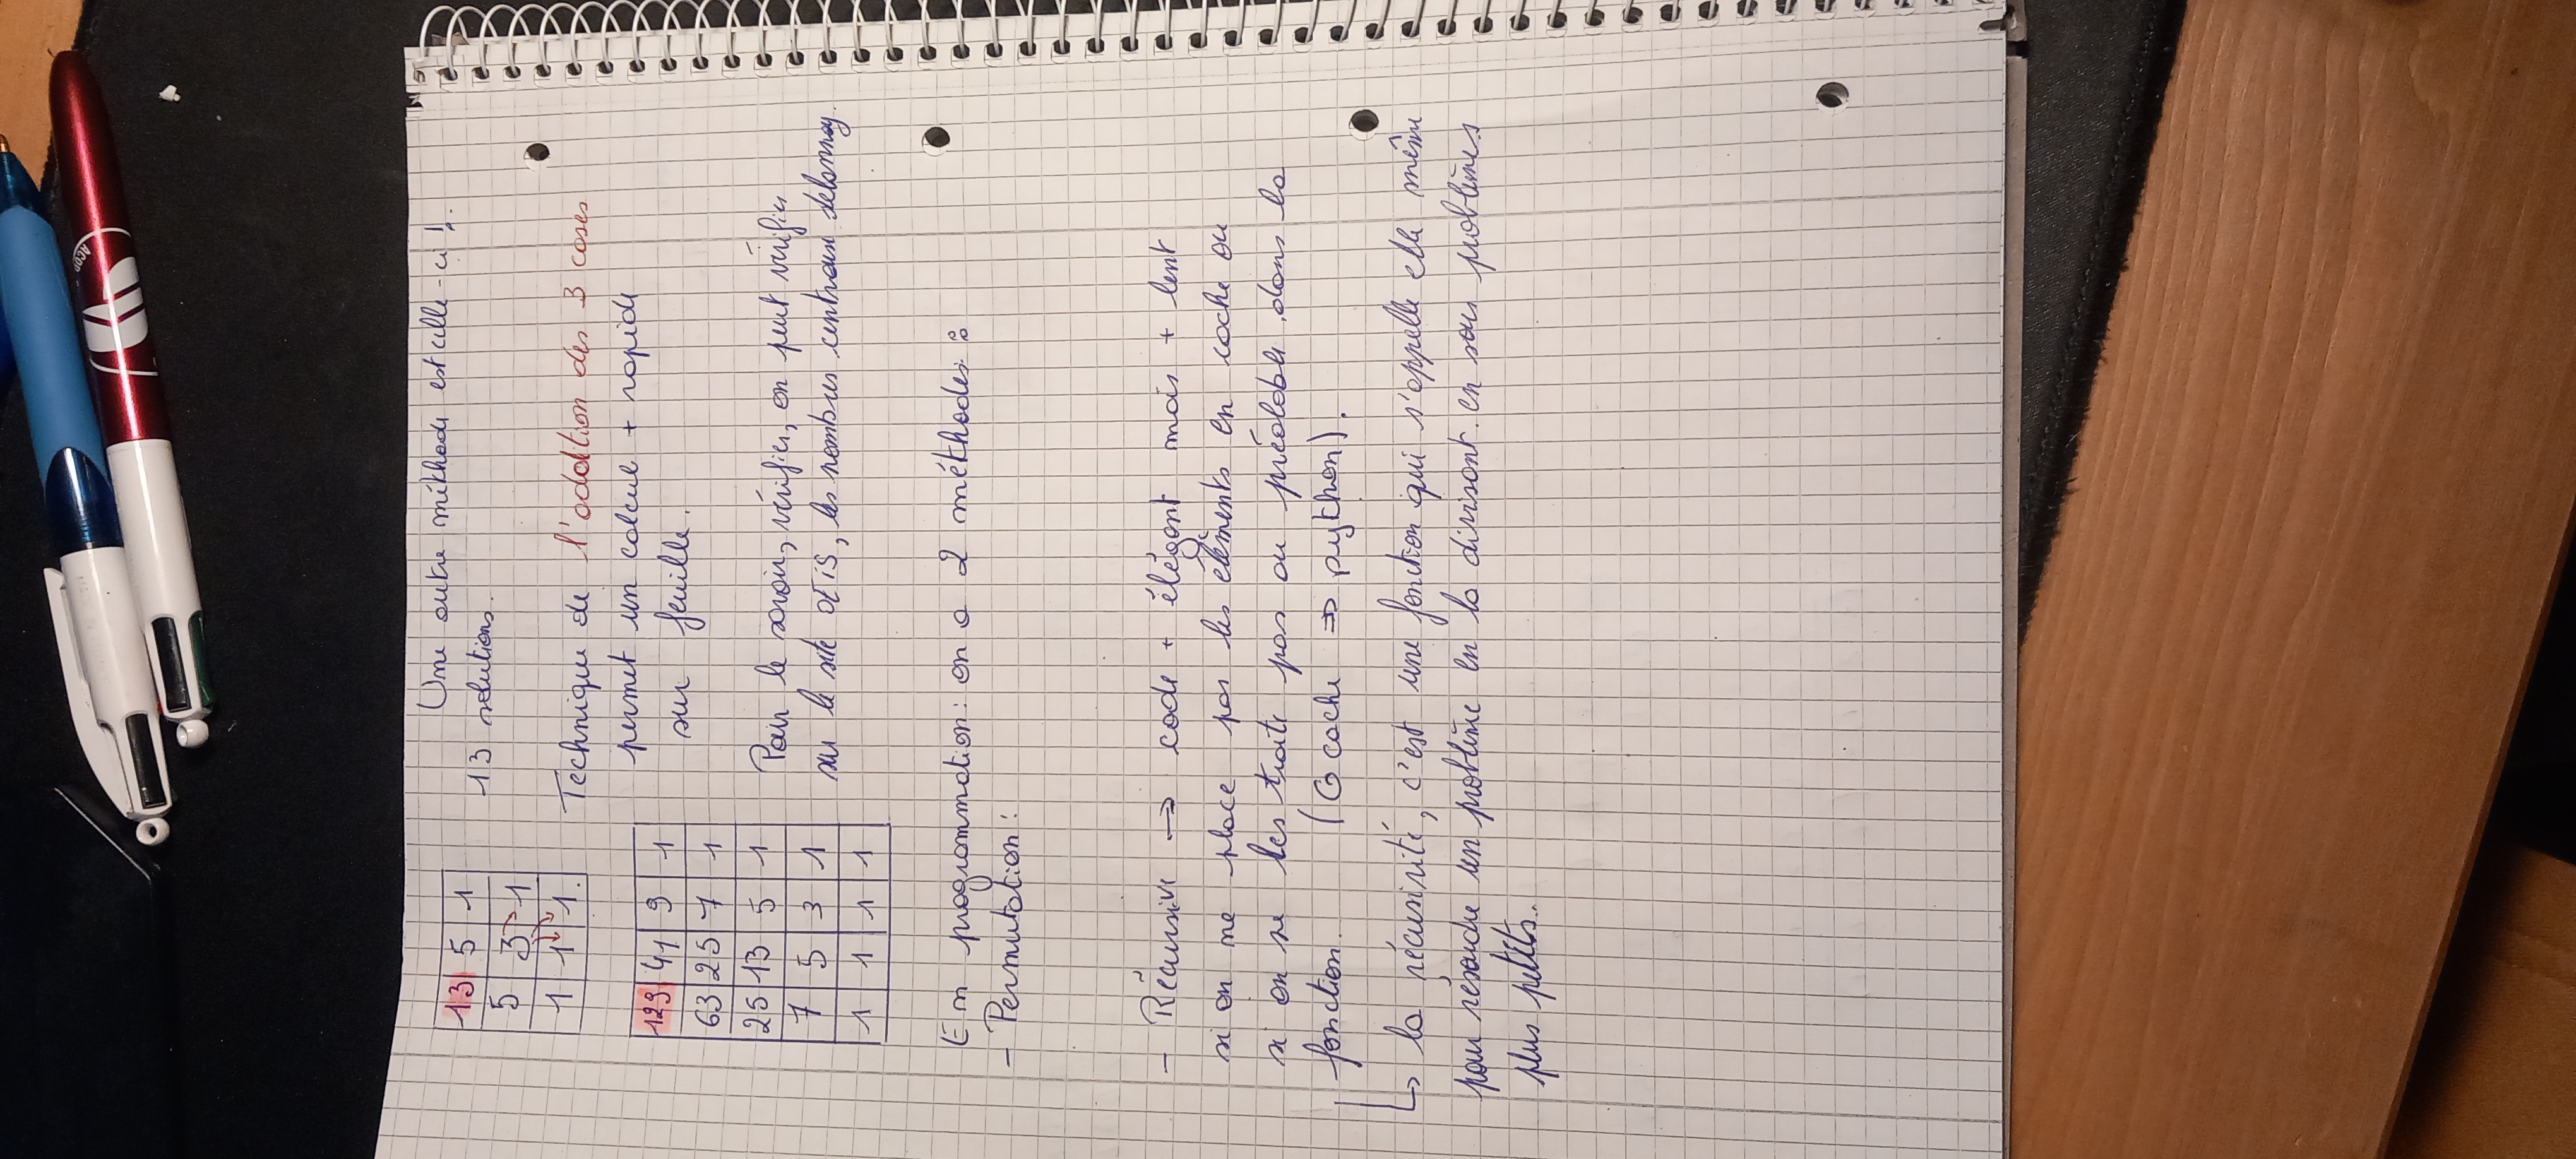 ACOR
13 5 1
5 3 1
1 1 1.
Une autre méthode est celle-ci !.
13 solutions.
Technique de l'addition des 3 cases
permet un calcul + rapide
sur feuille.
129 41 9 1
63 25 7 1
25 13 5 1
7 5 3 1
1 1 1 1
Pour le savoir, vérifier, on peut vérifier
sur le site OEiS, les nombres centraux delannoy.
En programmation : on a 2 méthodes :
- Permutation :
- Récursive → code + élégant mais + lent
si on ne place pas les éléments en cache ou
si on ne les traite pas au préalable dans la
fonction. (@ cache ⇒ python).
↳ la récusivité, c'est une fonction qui s'appelle elle même
pour résoudre un problème en le divisant en sous problèmes
plus petits.